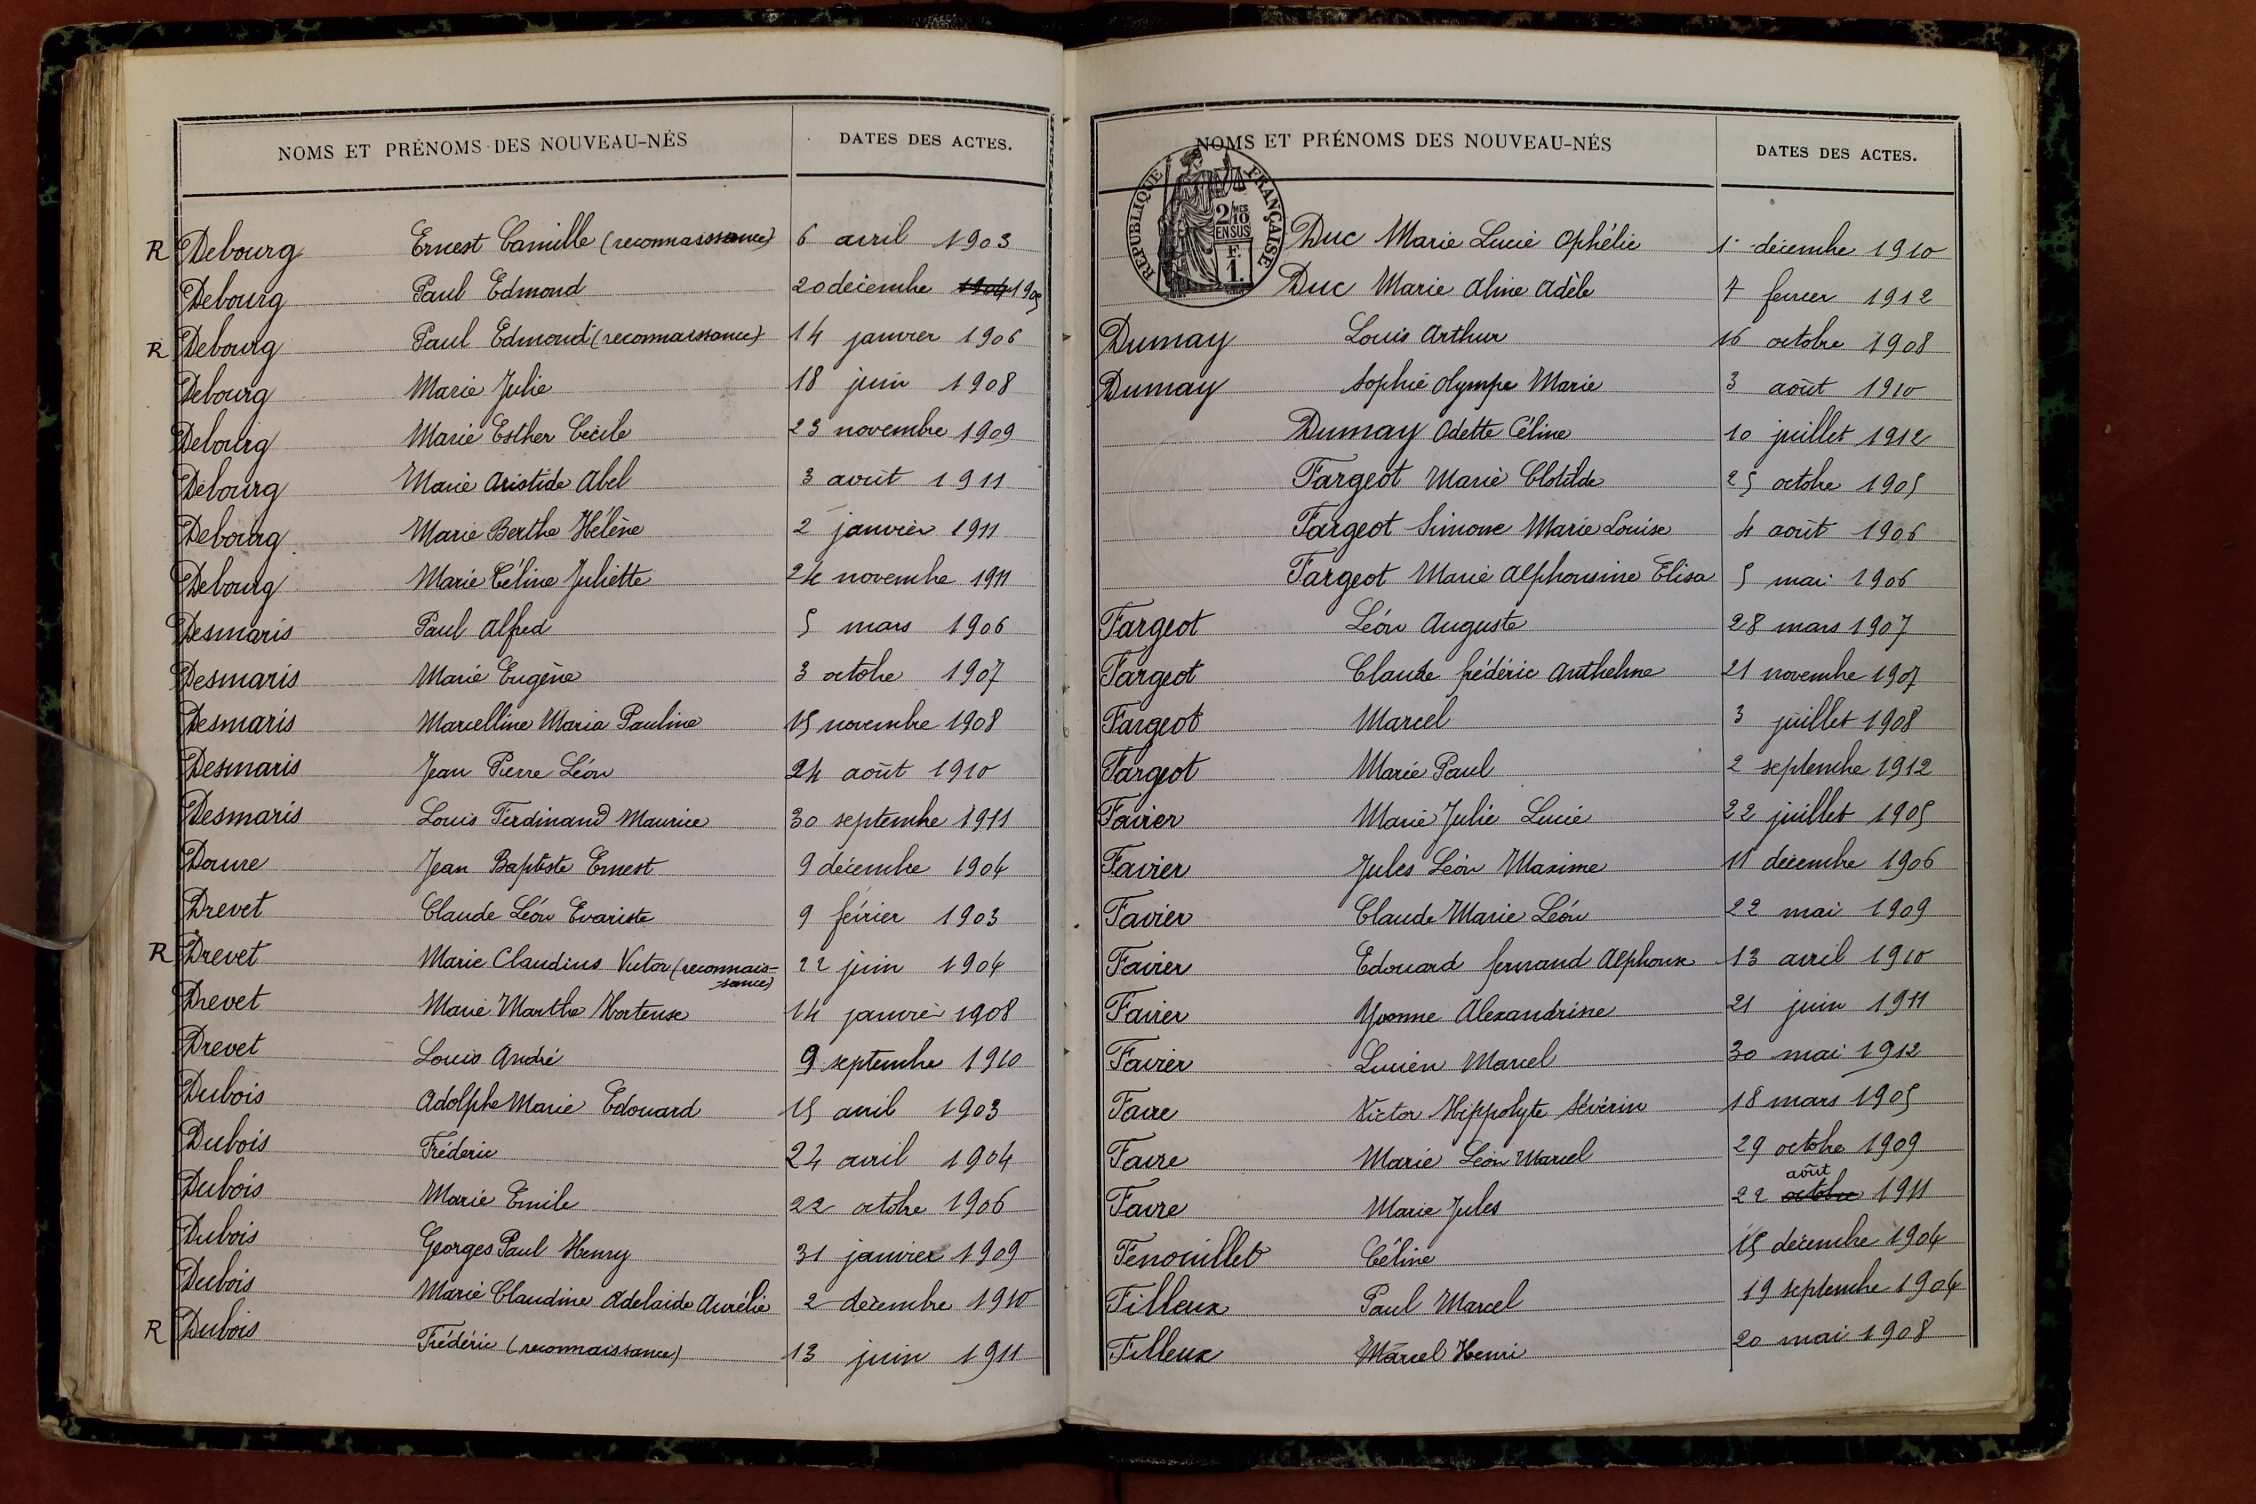 NOMS ET PRÉNOMS DES NOUVEAU-NÉS DATES DES ACTES.
R Debourg Ernest Camille (reconnaissance) 6 avril 1903
Debourg Paul Edmond 20 décembre 1904 1905
R Debourg Paul Edmond (reconnaissance) 14 janvier 1906
Debourg Marie Julie 18 juin 1908
Debourg Marie Esther Cécile 23 novembre 1909
Debourg Marie Aristide Abel 3 avout 1911
Debourg Marie Berthe Hélène 2 janvier 1911
Debourg Marie Céline Juliette 24 novembre 1911
Desmaris Paul Alfred 5 mars 1906
Desmaris Marie Eugène 3 octobre 1907
Desmaris Marcelline Maria Pauline 15 novembre 1908
Desmaris Jean Pierre Léon 24 août 1910
Desmaris Louis Ferdinand Maurice 30 septembre 1911
Doure Jean Baptiste Ernest 9 décembre 1904
Drevet Claude Léon Evariste 9 février 1903
R Drevet Marie Claudius Victor (reconnais-
sance) 22 juin 1904
Drevet Marie Marthe Hortense 14 janvier 1908
Drevet Louis André 9 septembre 1910
Dubois Adolphe Marie Edouard 15 avril 1903
Dubois Frédéric 24 avril 1904
Dubois Marie Emile 22 octobre 1906
Dubois Georges Paul Henry 31 janvier 1909
Dubois Marie Claudine Adelaide Aurélie 2 décembre 1910
R Dubois Frédéric (reconnaissance) 13 juin 1911
NOMS ET PRÉNOMS DES NOUVEAU-NÉS DATES DES ACTES.
RÉPUBLIQUE FRANÇAISE
2/10 MES
EN SUS
F.
1.
Duc Marie Lucie Ophélie 1er décembre 1910
Duc Marie Aline Adèle 7 fevrier 1912
Dumay Louis Arthur 16 octobre 1908
Dumay Sophie Olympe Marie 3 août 1910
Dumay Odette Céline 10 juillet 1912
Fargeot Marie Clotilde 25 octobre 1905
Fargeot Simone Marie Louise 4 août 1906
Fargeot Marie Alphonsine Elisa 5 mai 1906
Fargeot Léon Auguste 28 mars 1907
Fargeot Claude frédéric Anthelme 21 novembre 1907
Fargeot Marcel 3 juillet 1908
Fargeot Marie Paul 2 septembre 1912
Favier Marie Julie Lucie 22 juillet 1905
Favier Jules Léon Maxime 11 décembre 1906
Favier Claude Marie Léon 22 mai 1909
Favier Edouard fernand Alphonse 13 avril 1910
Favier Yvonne Alexandrine 21 juin 1911
Favier Lucien Marcel 30 mai 1912
Favre Victor Hippolyte Sévérin 18 mars 1905
Favre Marie Léon Marcel 29 octobre 1909
août
Favre Marie Jules 22 octobre 1911
Fenouillet Céline 15 décembre 1904
Filleux Paul Marcel 19 septembre 1904
Filleux Marcel Henri 20 mai 1908